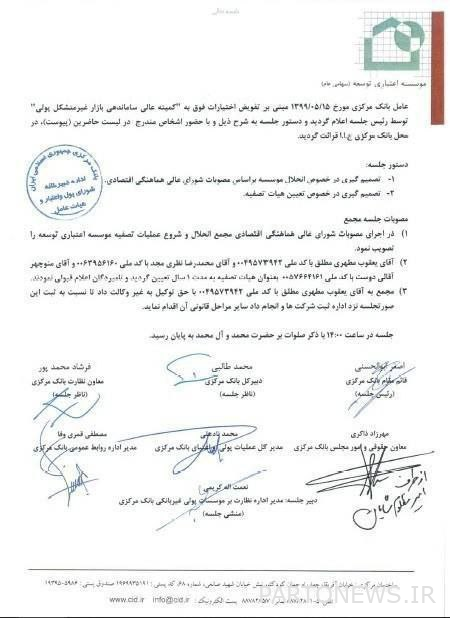 باسمه تعالی
موسسه اعتباری توسعه (سهامی عام)
عامل بانک مرکزی مورخ ۱۳۹۹/۰۵/۱۵ مبنی بر تفویض اختیارات فوق به "کمیته عالی ساماندهی بازار غیرمتشکل پولی"
توسط رئیس جلسه اعلام گردید و دستور جلسه به شرح ذیل و با حضور اشخاص مندرج در لیست حاضرین (پیوست)، در
محل بانک مرکزی ج.ا.ا قرائت گردید.
دستور جلسه:
۱- تصمیم گیری در خصوص انحلال موسسه براساس مصوبات شورای عالی هماهنگی اقتصادی.
۲- تصمیم گیری در خصوص تعیین هیات تصفیه.
بانک مرکزی جمهوری اسلامی ایران
اداره دبیرخانه
شورای پول و اعتبار و
هیات عامل
مصوبات جلسه مجمع
۱) در اجرای مصوبات شورای عالی هماهنگی اقتصادی مجمع انحلال و شروع عملیات تصفیه موسسه اعتباری توسعه را
تصویب نمود.
۲) آقای یعقوب مطهری مطلق با کد ملی ۰۰۴۹۵۷۳۹۴۲ و آقای محمدرضا نظری مجد با کد ملی ۰۰۶۳۹۵۶۱۶۰ و آقای منوچهر
آقائی دوست با کد ملی ۰۰۵۷۶۶۴۱۶۱ بعنوان هیات تصفیه به مدت ۱ سال تعیین گردید و نامبردگان اعلام قبولی نمودند.
۳) مجمع به آقای یعقوب مطهری مطلق با کد ملی ۰۰۴۹۵۷۳۹۴۲ با حق توکیل به غیر وکالت داد تا نسبت به ثبت این
صورتجلسه نزد اداره ثبت شرکت ها و انجام سایر مراحل قانونی آن اقدام نماید.
جلسه در ساعت ۱۴:۰۰ با ذکر صلوات بر حضرت محمد و آل محمد به پایان رسید.
اصغر ابوالحسنی محمد طالبی فرشاد محمد پور
قائم مقام بانک مرکزی دبیرکل بانک مرکزی معاون نظارت بانک مرکزی
(رئیس جلسه) (ناظر جلسه) (ناظر جلسه)
مهرزاد ذاکری محمد نادعلی مصطفی قمری وفا
معاون حقوقی و امور مجلس بانک مرکزی مدیر کل عملیات پولی و اعتباری بانک مرکزی مدیر اداره روابط عمومی بانک مرکزی
نعمت اله کریمی
دبیر جلسه: مدیر اداره نظارت بر موسسات پولی غیربانکی بانک مرکزی
(منشی جلسه)
از طرف
PARTONEWS.IR
ساختمان مرکزی: خیابان آفریقا، چهارراه جهان کودک، نبش خیابان شهید صانعی، شماره ۶۸، کد پستی: ۱۹۶۹۹۳۵۱۹۱ صندوق پستی: ۵۹۸۶-۱۹۳۹۵
پست الکترونیک: info@cid.ir www.cid.ir